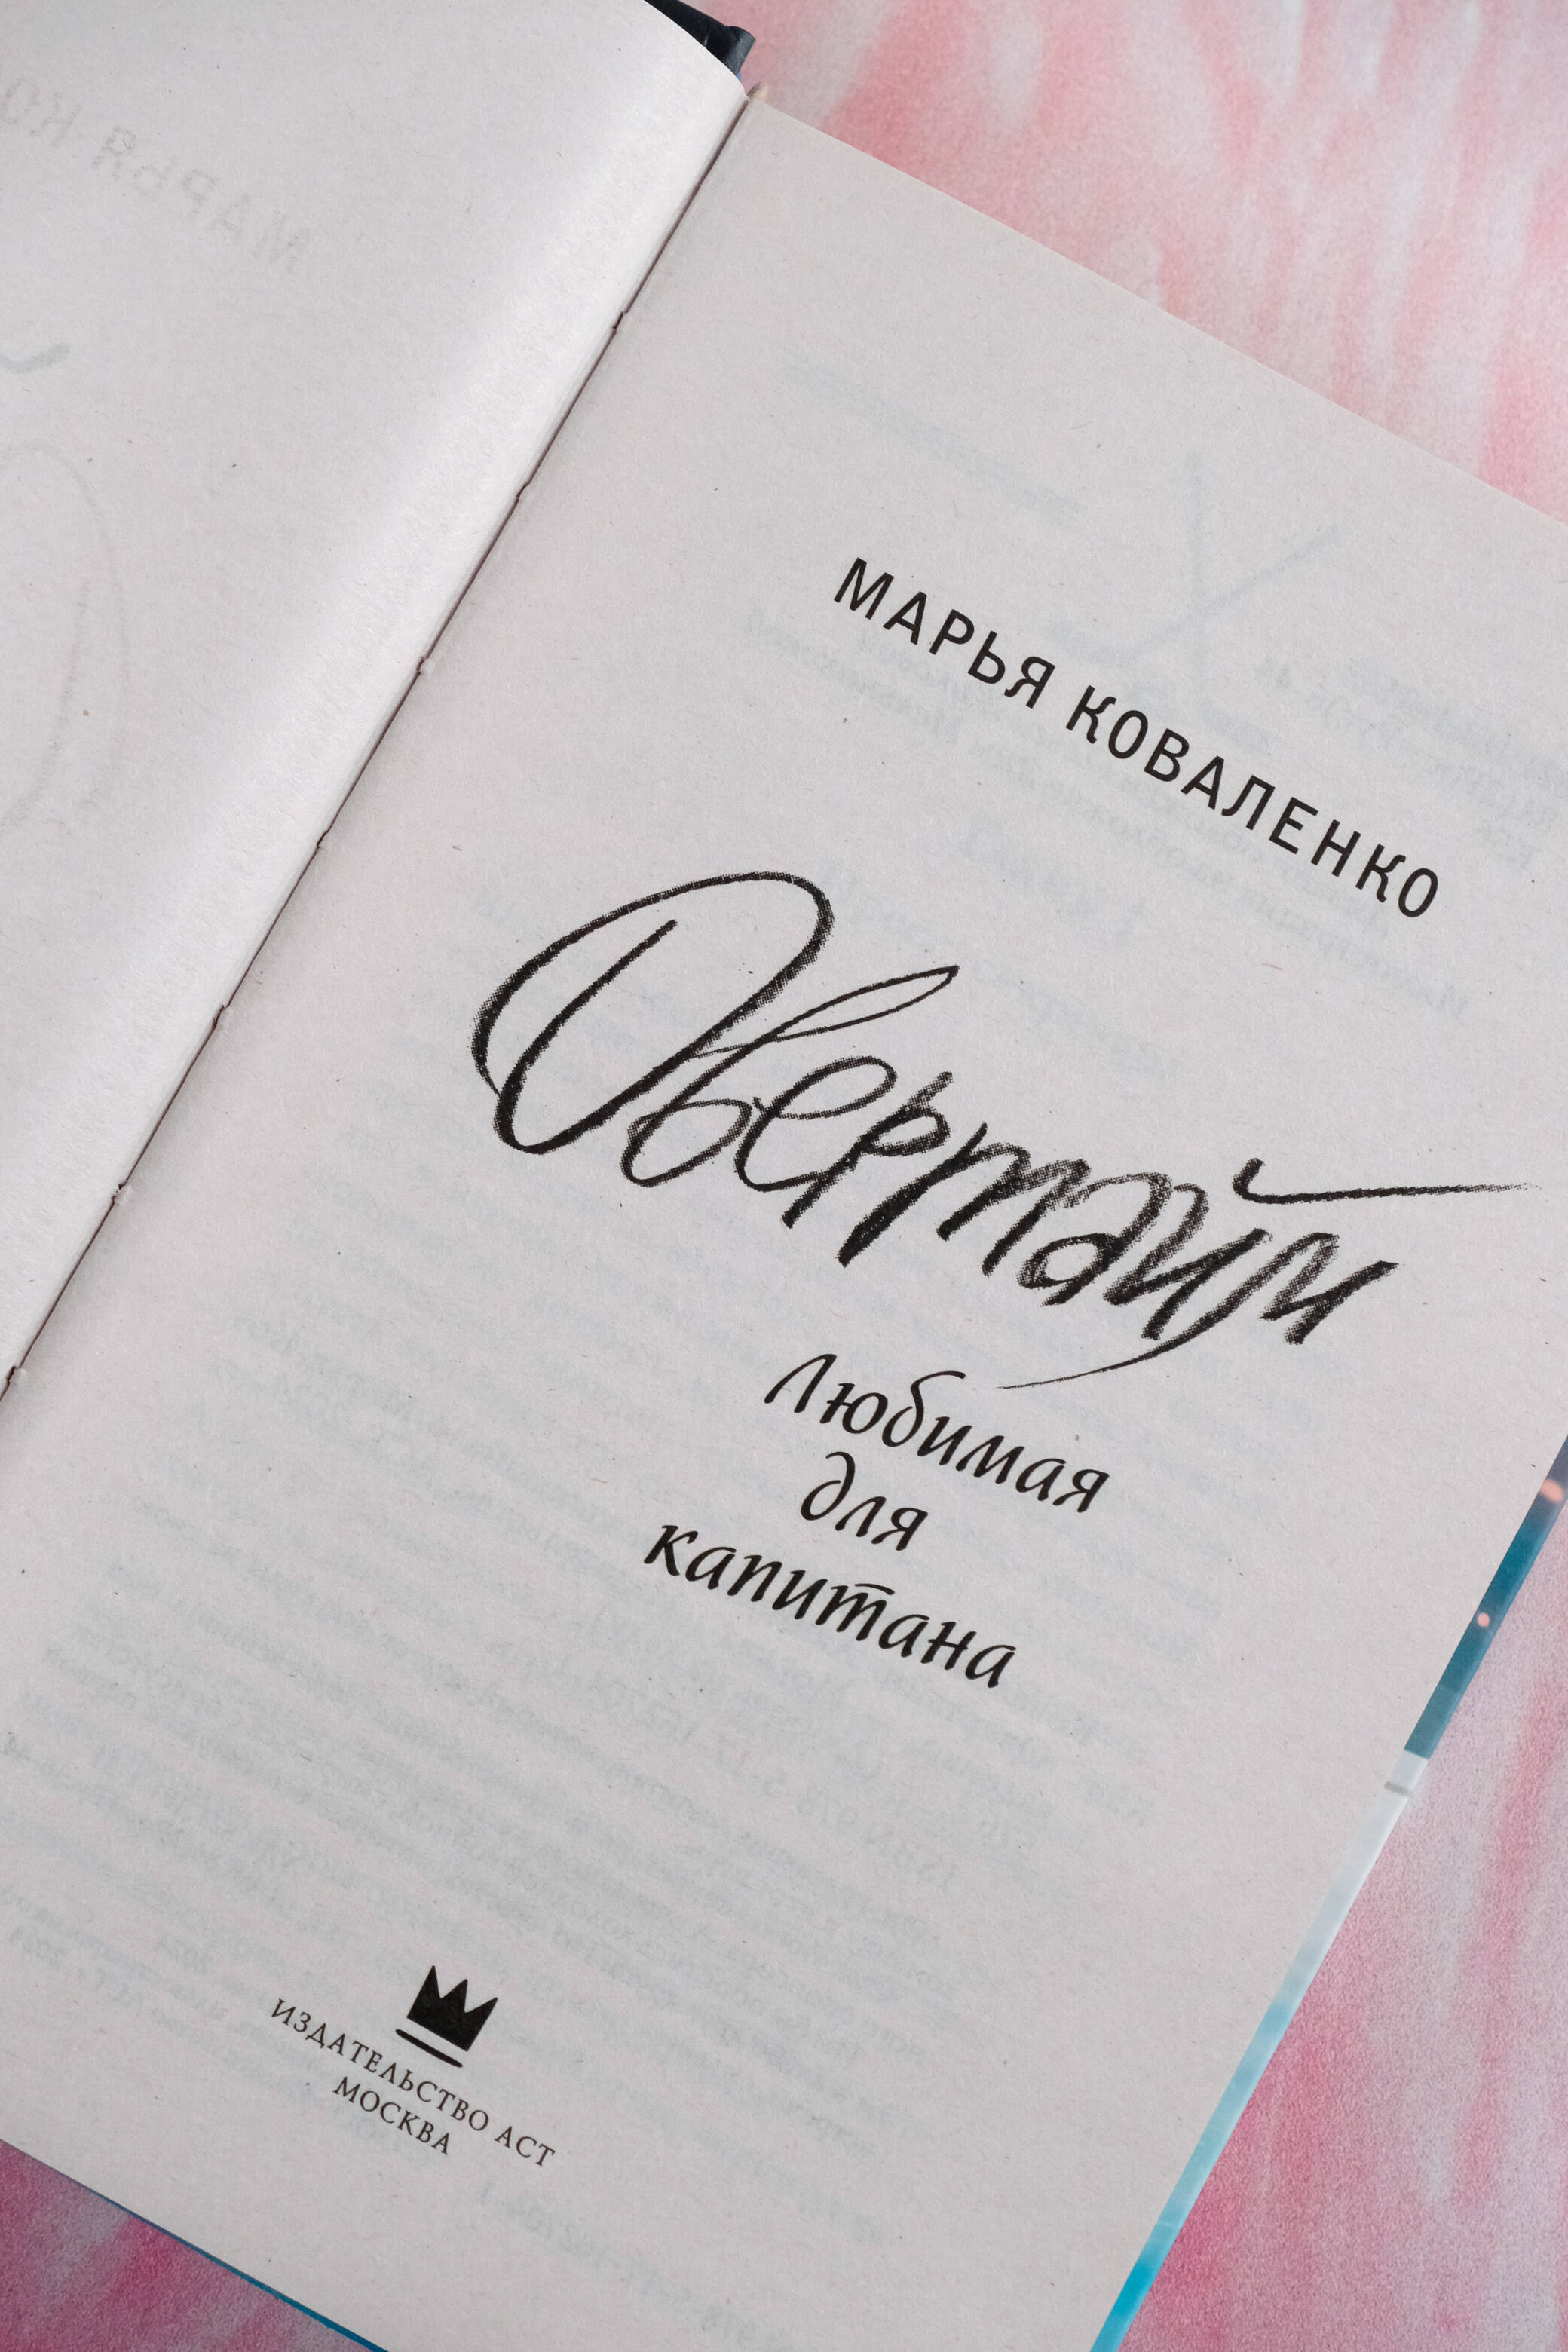 МАРЬЯ КОВАЛЕНКО
Овертайм
Любимая
для
капитана
ИЗДАТЕЛЬСТВО АСТ
МОСКВА